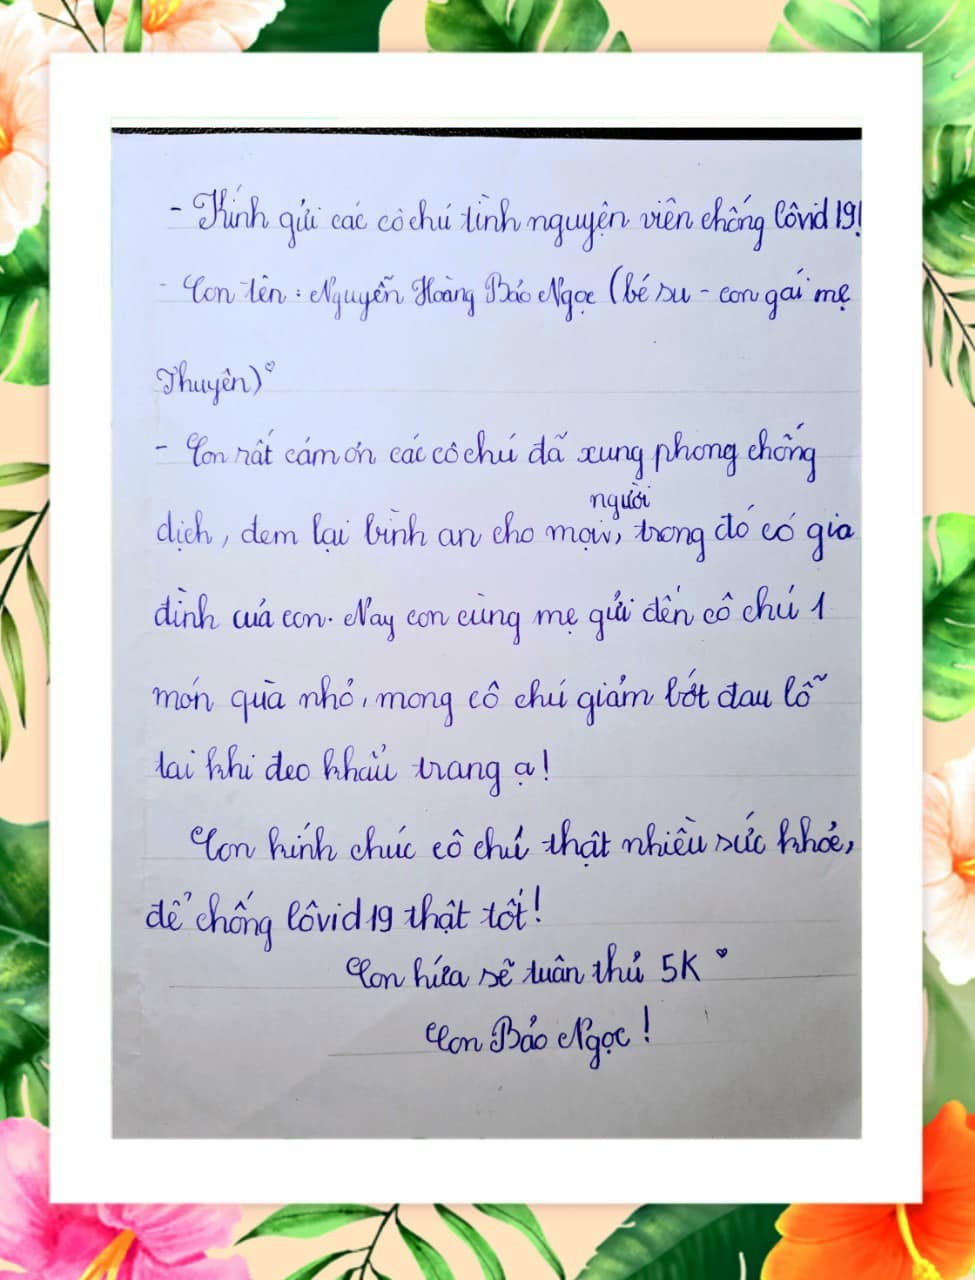 - Kính gửi các cô chú tình nguyện viên chống Côvid 19!
- Con tên : Nguyễn Hoàng Bảo Ngọc (bé su - con gái mẹ
Thuyên)♡
- Con rất cám ơn các cô chú đã xung phong chống
người
dịch, đem lại bình an cho mọi, trong đó có gia
đình của con. Nay con cùng mẹ gửi đến cô chú 1
món quà nhỏ, mong cô chú giảm bớt đau lỗ
tai khi đeo khẩu trang ạ!
Con kính chúc cô chú thật nhiều sức khỏe,
để chống Côvid 19 thật tốt!
Con hứa sẽ tuân thủ 5K ♡
Con Bảo Ngọc !